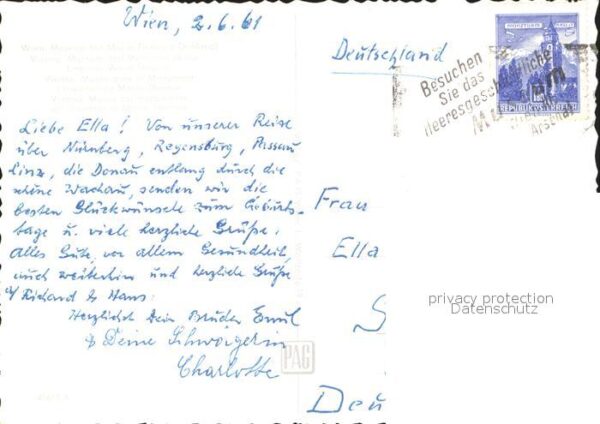 Wien, 2.6.61
Deutschland
Besuchen
Sie das
Heeresgeschichtliche
Museum
Arsenal
REPUBLIK ÖSTERREICH
Liebe Ella! Von unserer Reise
über Nürnberg, Regensburg, Passau
Linz, die Donau entlang durch die
schöne Wachau, senden wir die
besten Glückwünsche zum Geburts-
tage u. viele herzliche Grüße.
Alles Gute, vor allem Gesundheit,
auch weiterhin und herzliche Grüße
a/ Richard & Hans.
Herzlichst Dein Bruder Emil
& Deine Schwägerin
Charlotte
Frau
Ella
S
Deu
PAG
privacy protection
Datenschutz